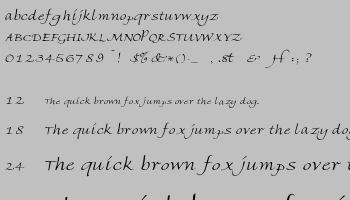 abcdefghijklmnopqrstuvwxyz
ABCDEFGHIJKLMNOPQRSTUVWXYZ
0123456789 ~! $%&*()-_ , .st & H :; ?
12 The quick brown fox jumps over the lazy dog.
18 The quick brown fox jumps over the lazy dog
24 The quick brown fox jumps over t